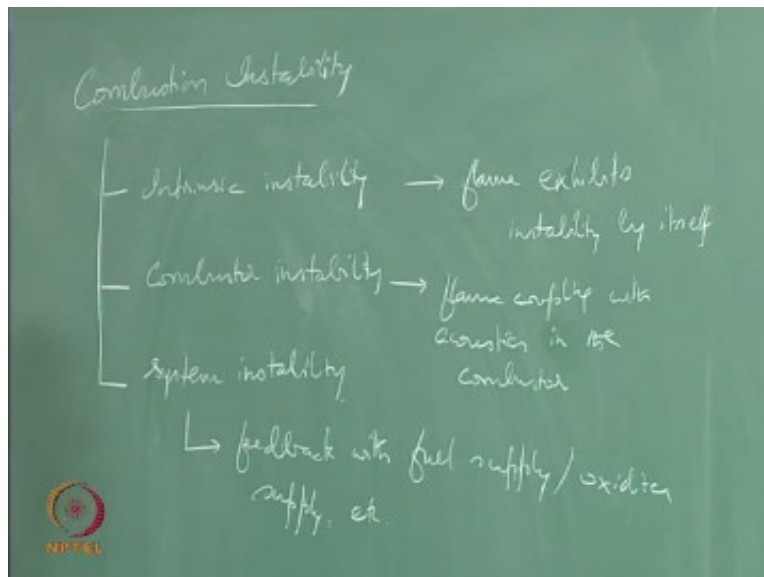 Combustion Instability
Intrinsic instability → flame exhibits
instability by itself
Combustor instability → flame coupling with
acoustics in the
combustor
System instability
↳ feedback with fuel supply / oxidizer
supply, etc.
NPTEL